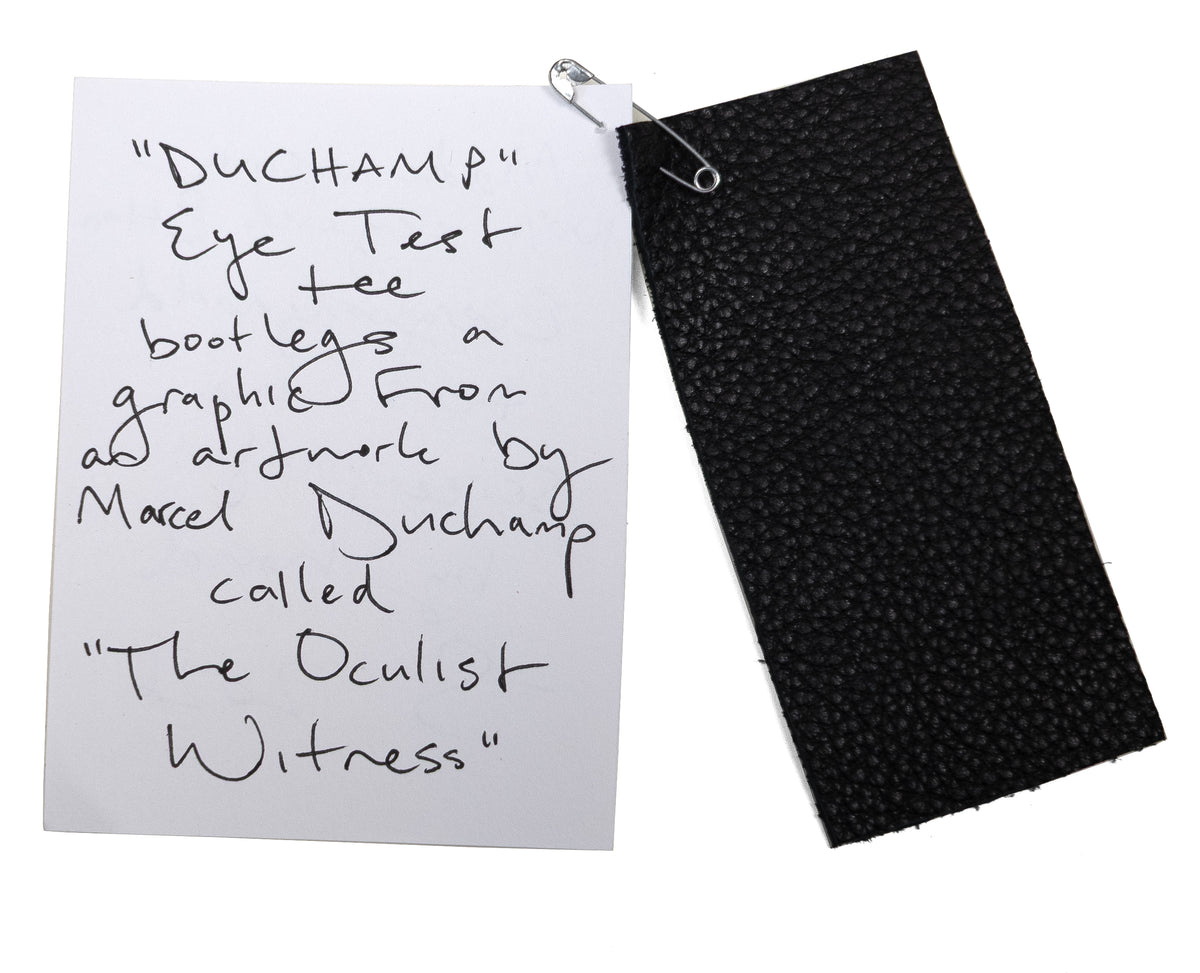 "DUCHAMP"
Eye Test
tee
bootlegs a
graphic From
an artwork by
Marcel Duchamp
called
"The Oculist
Witness"